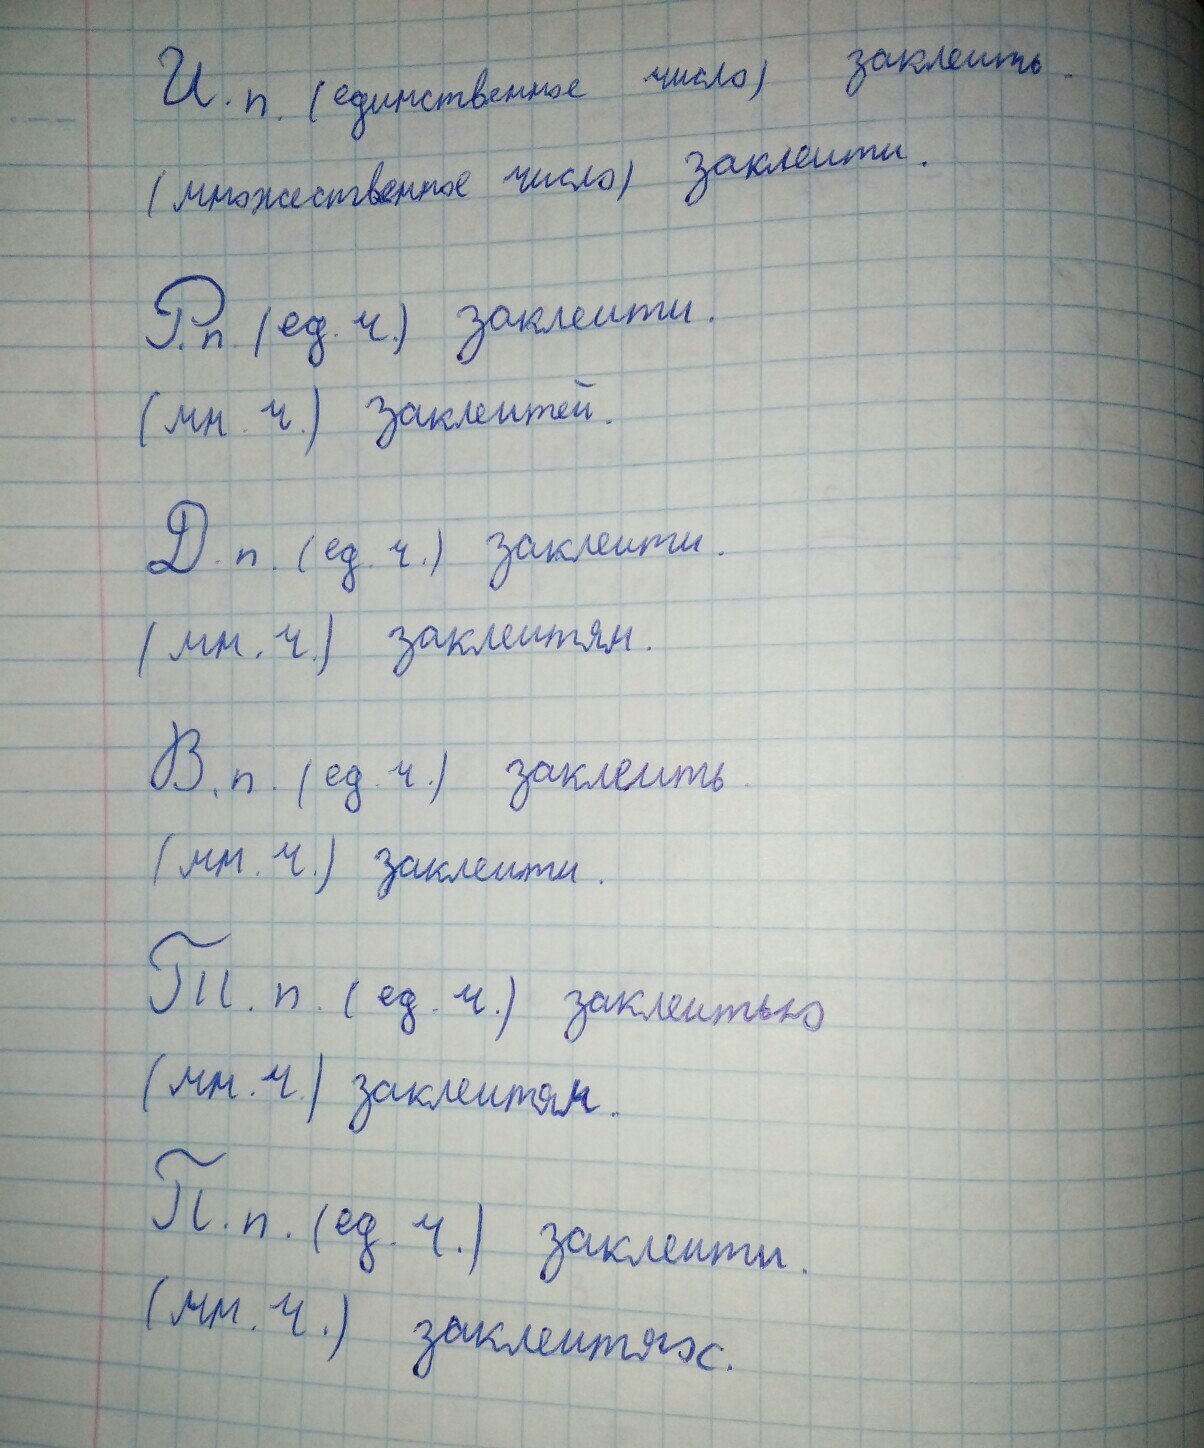 И.п. (единственное число) заклеить.
(множественное число) заклеити.
Р.п. (ед.ч.) заклеити.
(мн.ч.) заклеитей.
Д.п. (ед.ч.) заклеити.
(мн.ч.) заклеитям.
В.п. (ед.ч.) заклеить.
(мн.ч.) заклеити.
Т.п. (ед.ч.) заклеитью
(мн.ч.) заклеитям.
П.п. (ед.ч.) заклеити.
(мн.ч.) заклеитях.